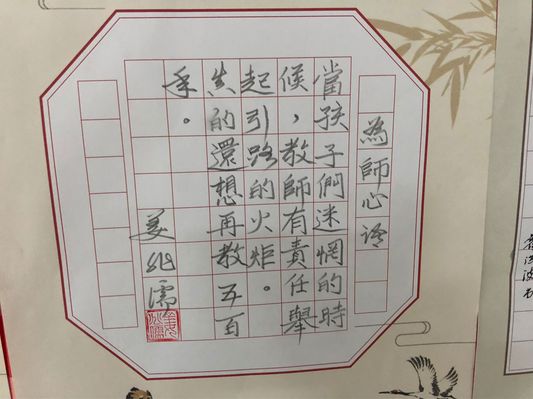 為師心
當孩子們迷惘的時
候，教師有責任舉
起引路的火炬。
真的還想再教五百
年。
姜兆濡